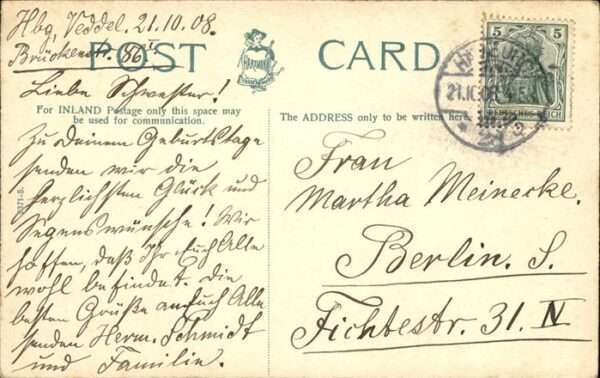 Hbg, Veddel, 21.10.08.
Brückenstr. 86I
POST CARD
HARTMANN
Liebe Schwester!
For INLAND Postage only this space may
be used for communication.
Zu Deinem Geburtstage
senden wir die
herzlichsten Glück und
Segenswünsche! Wir
hoffen, daß Ihr Euch Alle
wohl befindet. Die
besten Grüße an Euch Alle
senden Herm. Schmidt
und Familie.
The ADDRESS only to be written here.
5 5
DEUTSCHES REICH
HAMBURG
21.10.08
Frau
Martha Meinecke.
Berlin. S.
Fichtestr. 31. IV